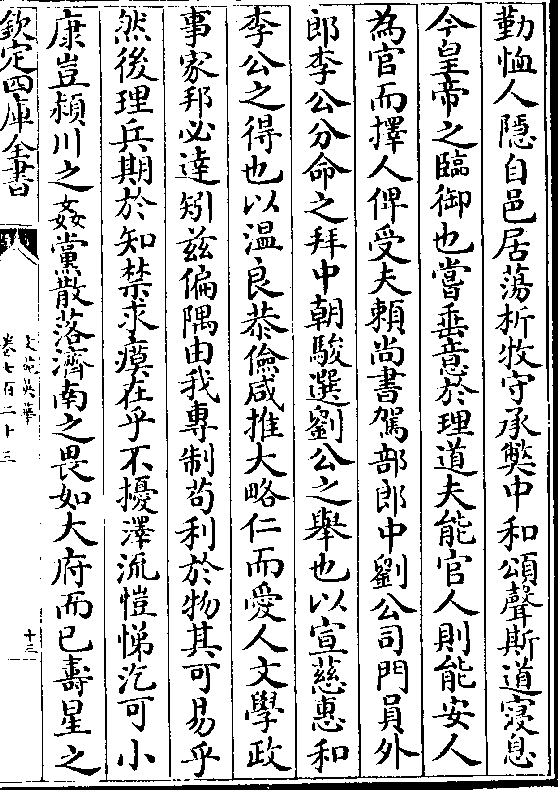 勤恤人隱自邑居蕩析牧守承獘中和頌聲斯道寖息
今皇帝之臨御也嘗垂意於理道夫能官人則能安人
為官而擇人俾受夫賴尚書駕部郎中劉公司門員外
郎李公分命之拜中朝駿選劉公之舉也以宣慈惠和
李公之得也以温良恭儉咸推大略仁而愛人文學政
事家邦必達矧兹偏隅由我專制苟利於物其可易乎
然後理兵期於知禁求瘼在乎不擾澤流愷悌汔可小
康豈潁川之姦黨散落濟南之畏如大府而已壽星之
欽定四庫全書
文苑英華
卷七百二十三
十三